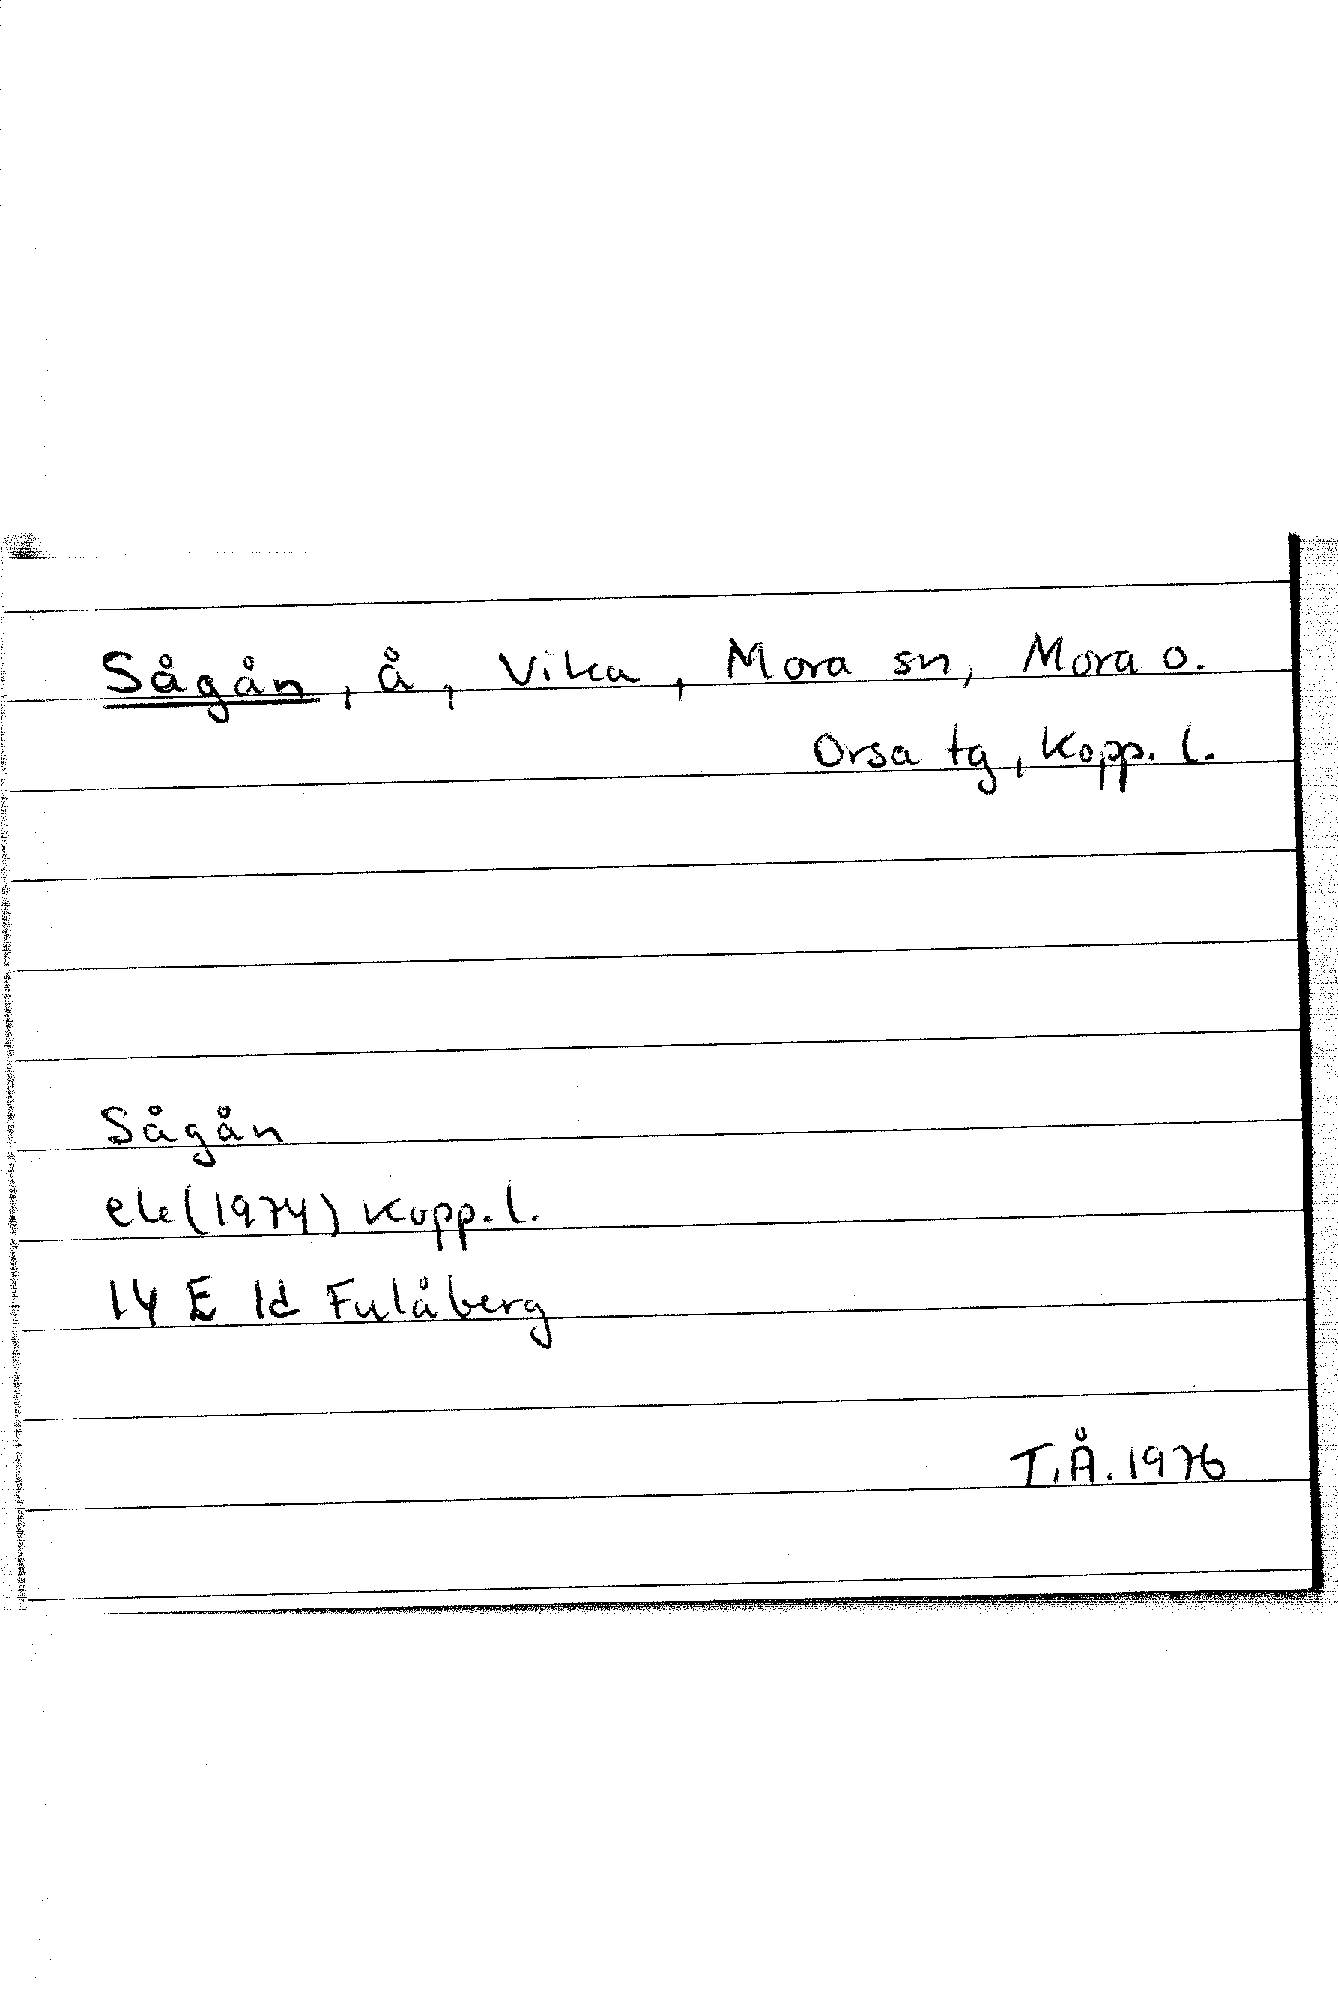 Sågån, å, Vika, Mora sn, Mora o.
Orsa tg, Kopp. l.
Sågån
ek (1974) Kopp. l.
14 E 1d Fulåberg
T.Å. 1976